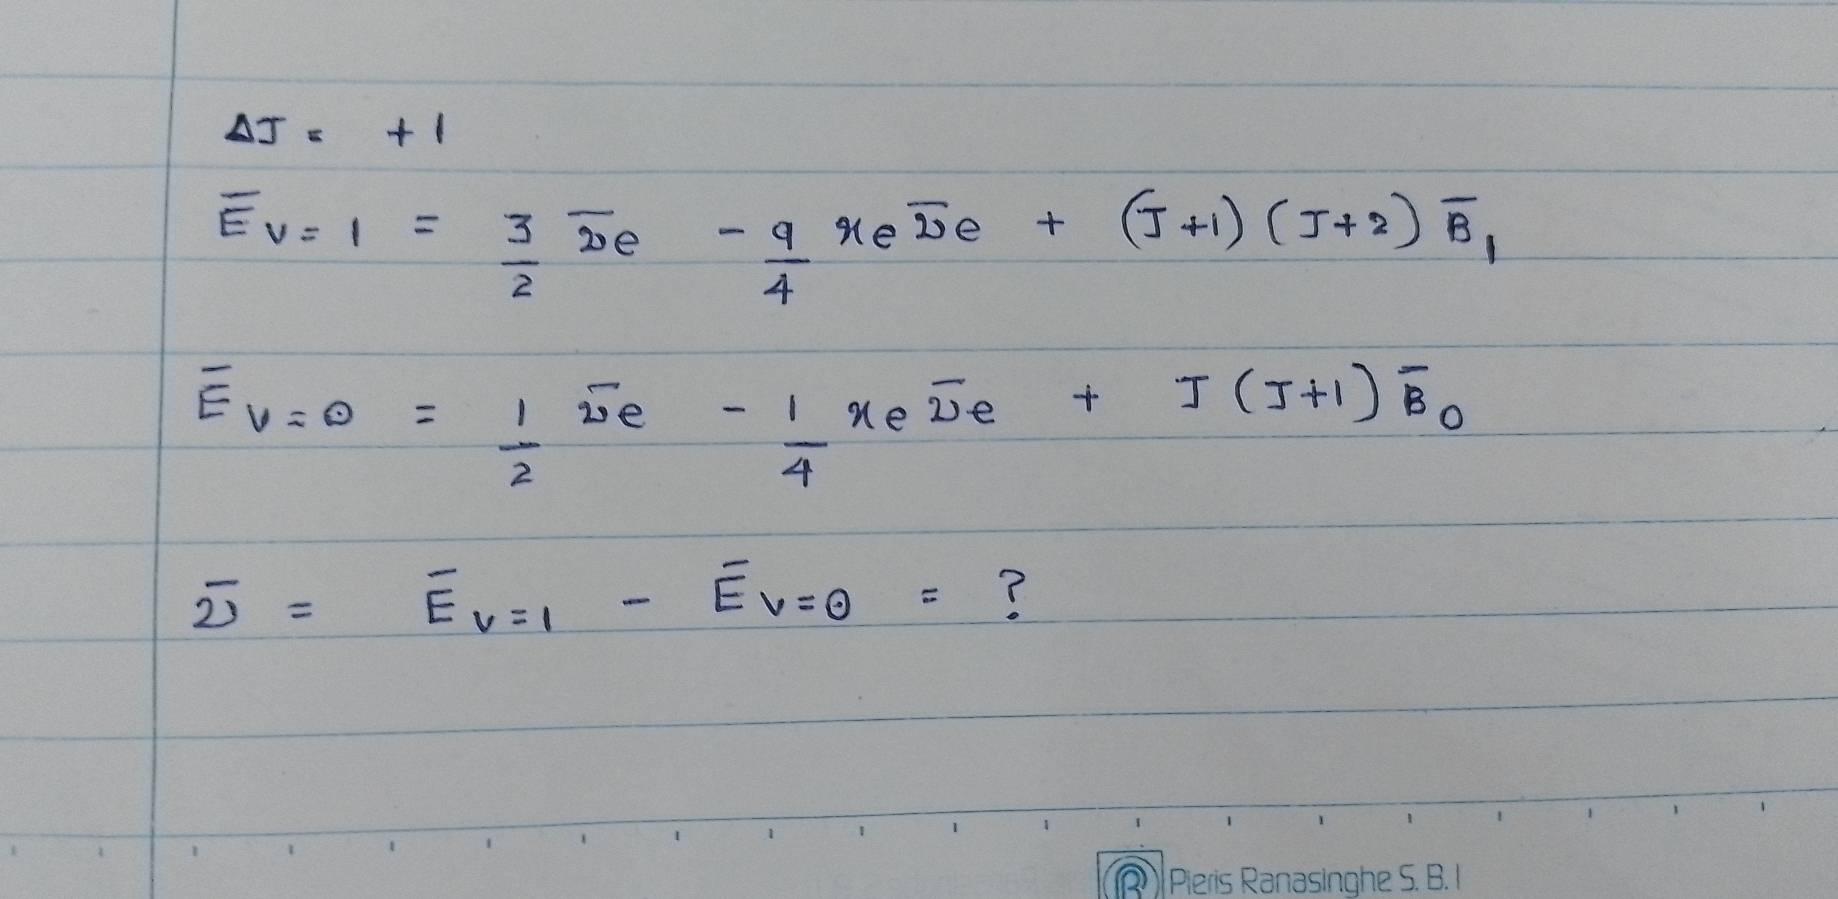 ΔJ = +1
Ēv=1 = 3/2 ν̄e - 9/4 xe ν̄e + (J+1) (J+2) B̄1
Ēv=0 = 1/2 ν̄e - 1/4 xe ν̄e + J (J+1) B̄0
ν̄ = Ēv=1 - Ēv=0 = ?
Pieris Ranasinghe S. B. I